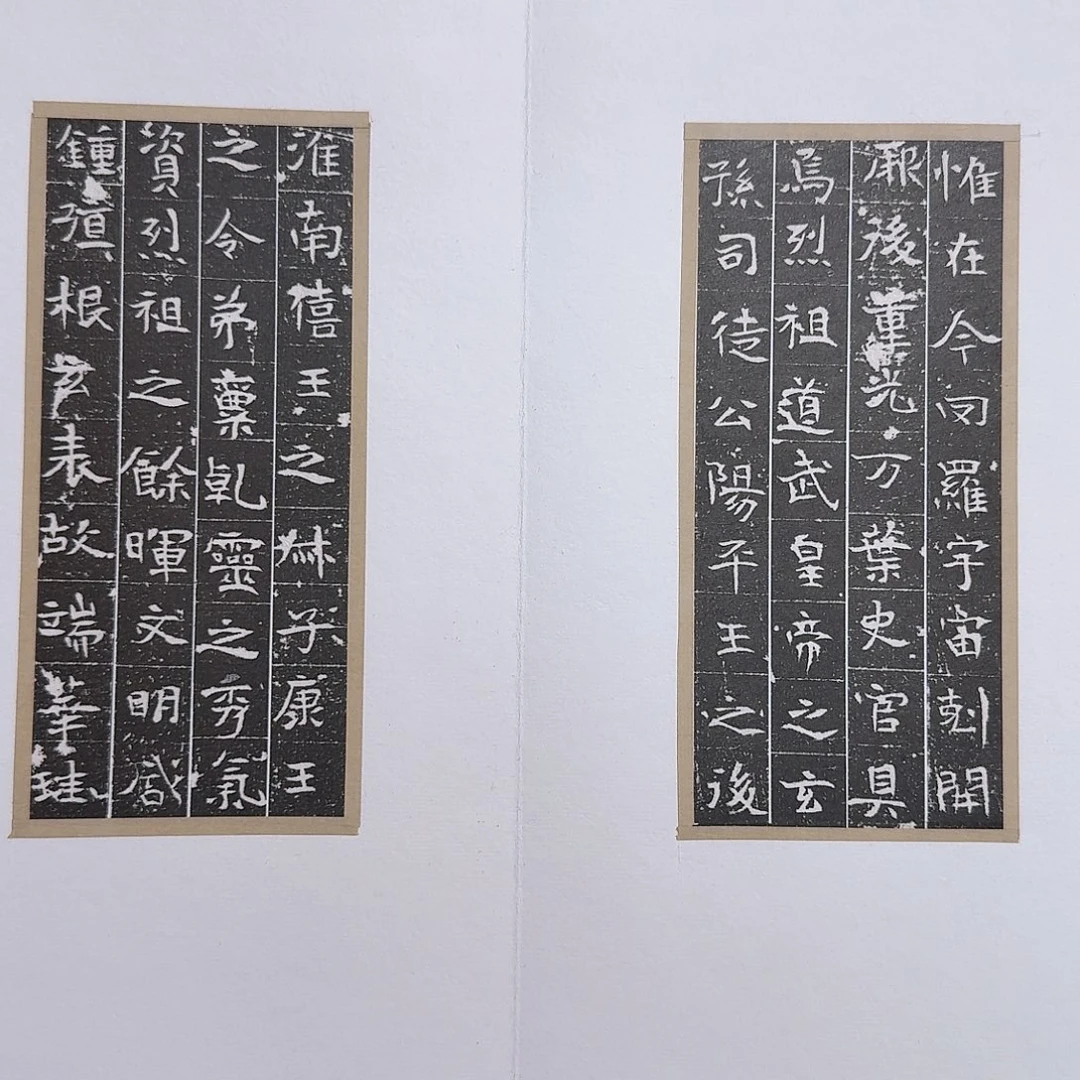 惟在今羅宇宙剋開
厥後重光万葉史官具
焉烈祖道武皇帝之玄
孫司徒公陽平王之後
淮南僖王之叔子康王
之令弟稟乹靈之秀氣
資烈祖之餘暉文明咸
鍾殖根玄表故端華珪